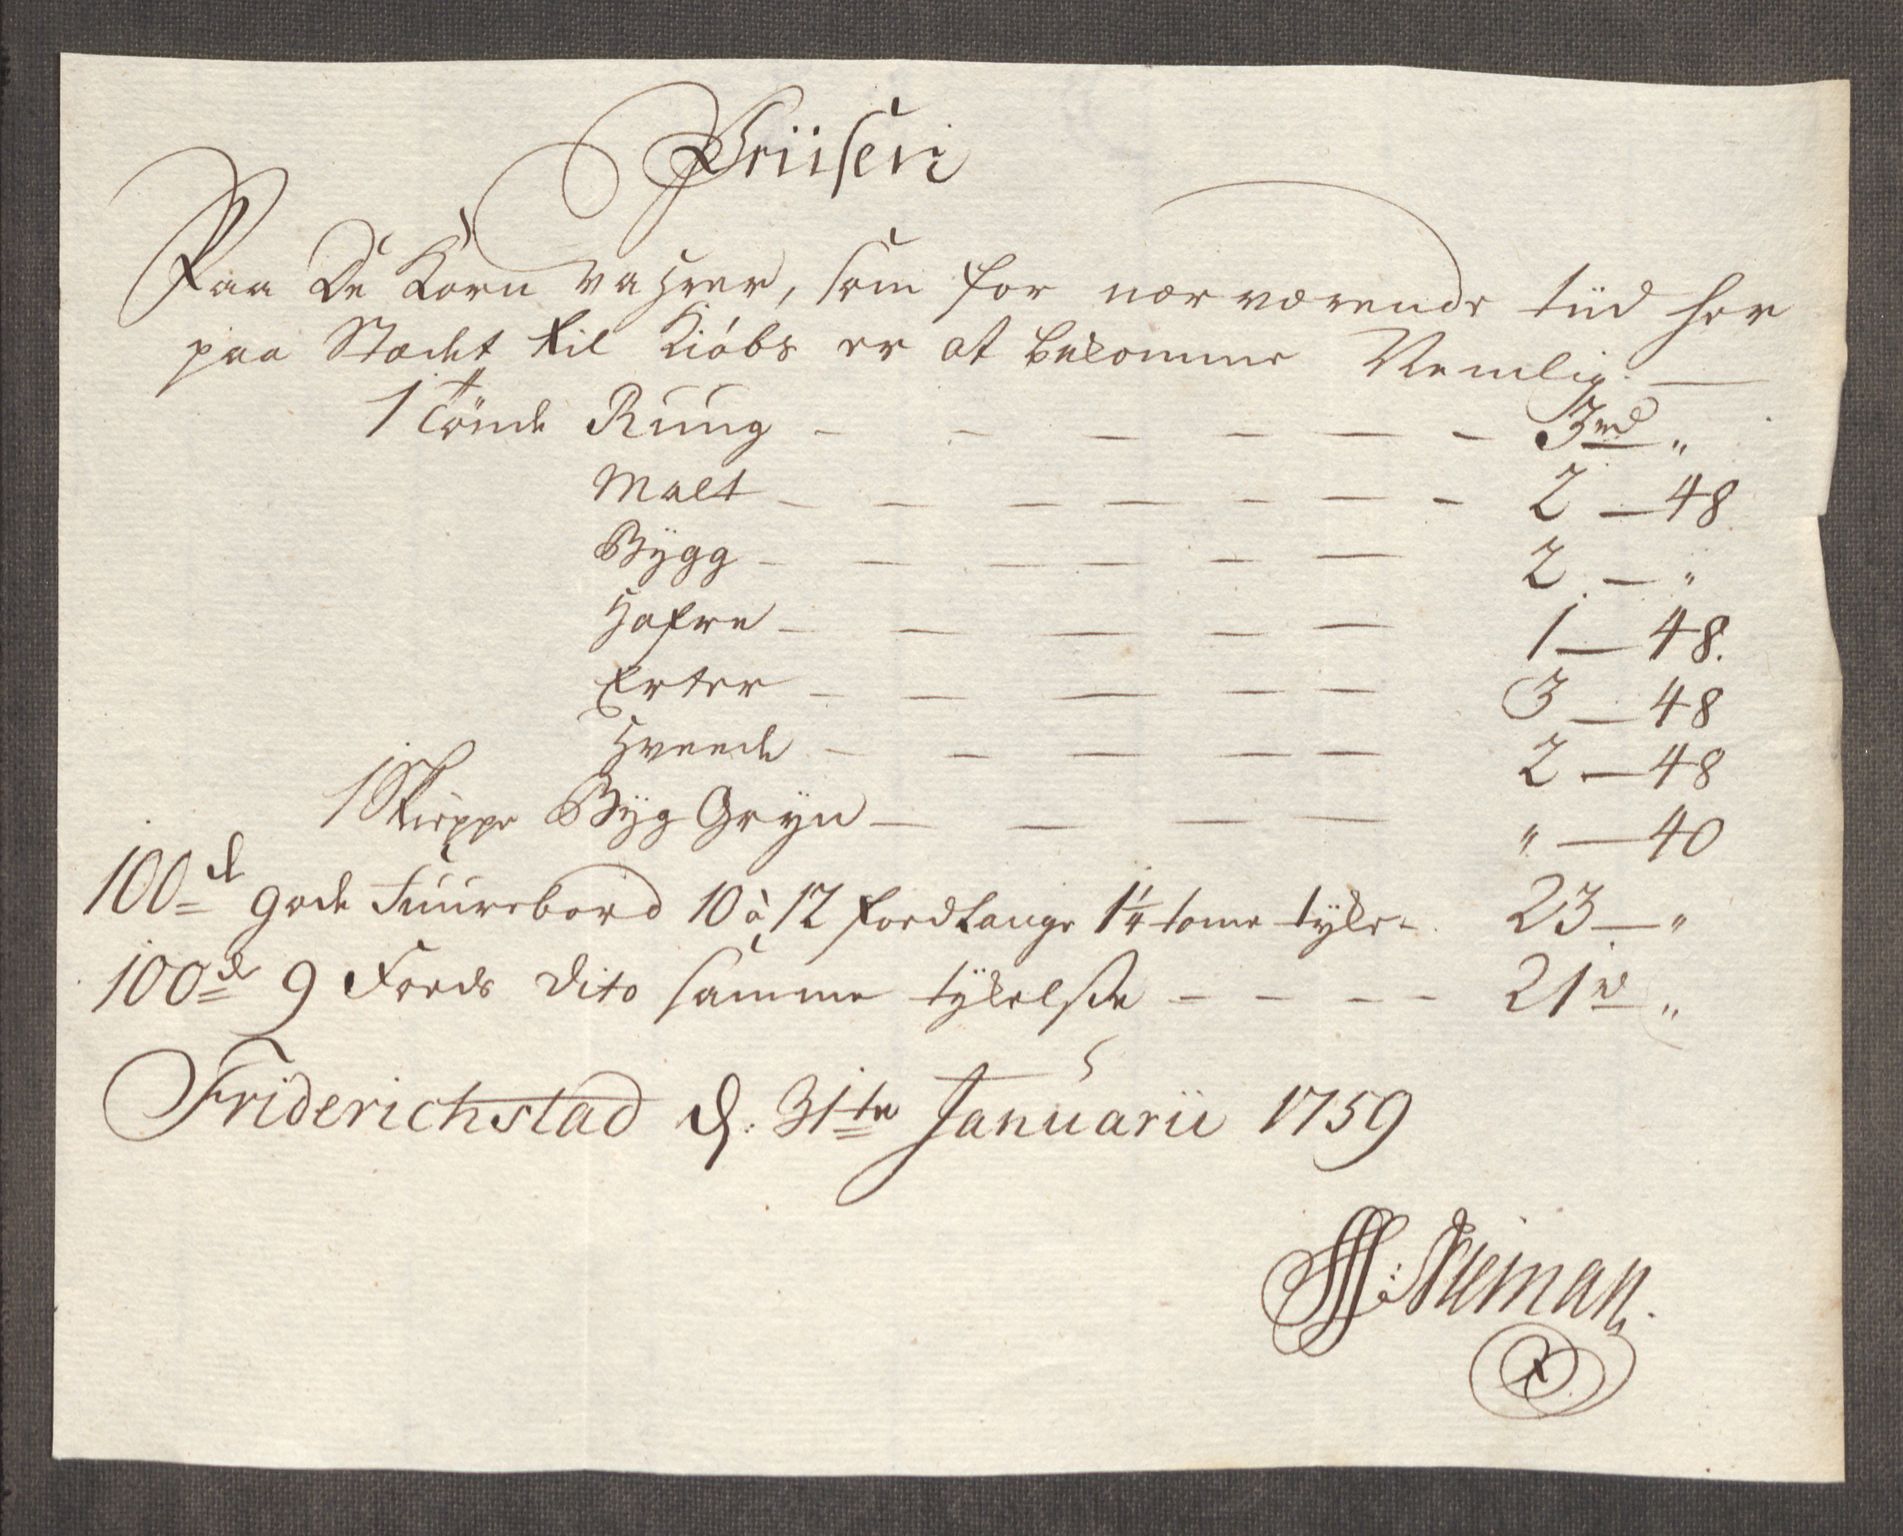 Priisen
Paa De Korn vahrer, som for nærværende tiid her
paa Stædet til Kiøbs er at bekomme Nemlig. —
1 Tønde Rung — — — — — — 3 rd „
Malt — — — — — — — 2 — 48
Bÿgg — — — — — — 2 — „
Hafre — — — — — 1 — 48.
Erter — — — — — 3 — 48
Hveede — — — — — 2 — 48
1 Skieppe Bÿg Grÿn — — — — „ — 40
100de gode Fuurebord 10 à 12 foed Lange 1¼ tome tÿke - 23 — „
100de 9 Foeds dito samme tÿkelsße — — — — 21 rd „
Friderichstad d: 31te Januarii 1759